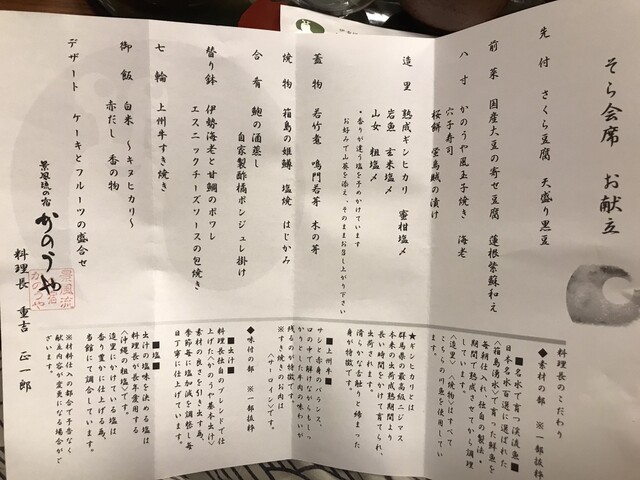 そら会席 お献立
先付 さくら豆腐 天盛り黒豆
前菜 国産大豆の寄せ豆腐 蓮根紫蘇和え
八寸 かのうや風玉子焼き 海老
穴子寿司
桜餅 蛍烏賊の漬け
造里 熟成ギンヒカリ 蜜柑塩〆
岩魚 玄米塩〆
山女 粗塩〆
・香りが違う塩を予めかけています
お好みで山葵を添え、そのままお召し上がり下さい
蓋物 若竹煮 鳴門若芽 木の芽
焼物 箱島の姫鱒 塩焼 はじかみ
合肴 鮑の酒蒸し
自家製酢橘ポンジュレ掛け
替り鉢 伊勢海老と甘鯛のポワレ
エスニックチーズソースの包焼き
七輪 上州牛すき焼き
御飯 白米 〜キヌヒカリ〜
赤だし 香の物
デザート ケーキとフルーツの盛合せ
景風流の宿 かのうや
料理長 重吉 正一郎
料理長のこだわり
◆素材の部 ※一部抜粋
■名水で育つ渓流魚■
日本名水百選に選ばれた
〈箱島湧水〉で育った鮮魚を
毎朝仕入れ、独自の製法・
期間で熟成させてから調理
しています。
〈造里〉〈焼物〉はすべて
こちらの川魚を使用してい
ます。
★ギンヒカリとは
群馬県の最高級ニジマス
本来の出荷成熟期間より
長い時間をかけて育てられ、
出荷されます。
滑らかな舌触りと締まった
身が特徴です。
■上州牛■
サシと赤身のバランス、
残るのが特徴です。
※すき焼きのお肉は
〈サーロイン〉です。
◆味付の部 ※一部抜粋
■出汁■
料理長独自のブレンドで仕
上げた〈かのうや基本出汁〉
素材の良さを引き出す為、
季節毎に塩加減を調整し毎
日丁寧に仕上げています。
■塩■
出汁の塩味を決める塩は
料理長が長年愛用する
〈沖縄の粗塩〉です。
造里にかけてある塩は
香り豊かに仕上げる為、
当館にて調合しています。
※材料仕入の都合で予告なく
献立内容が変更になる場合がご